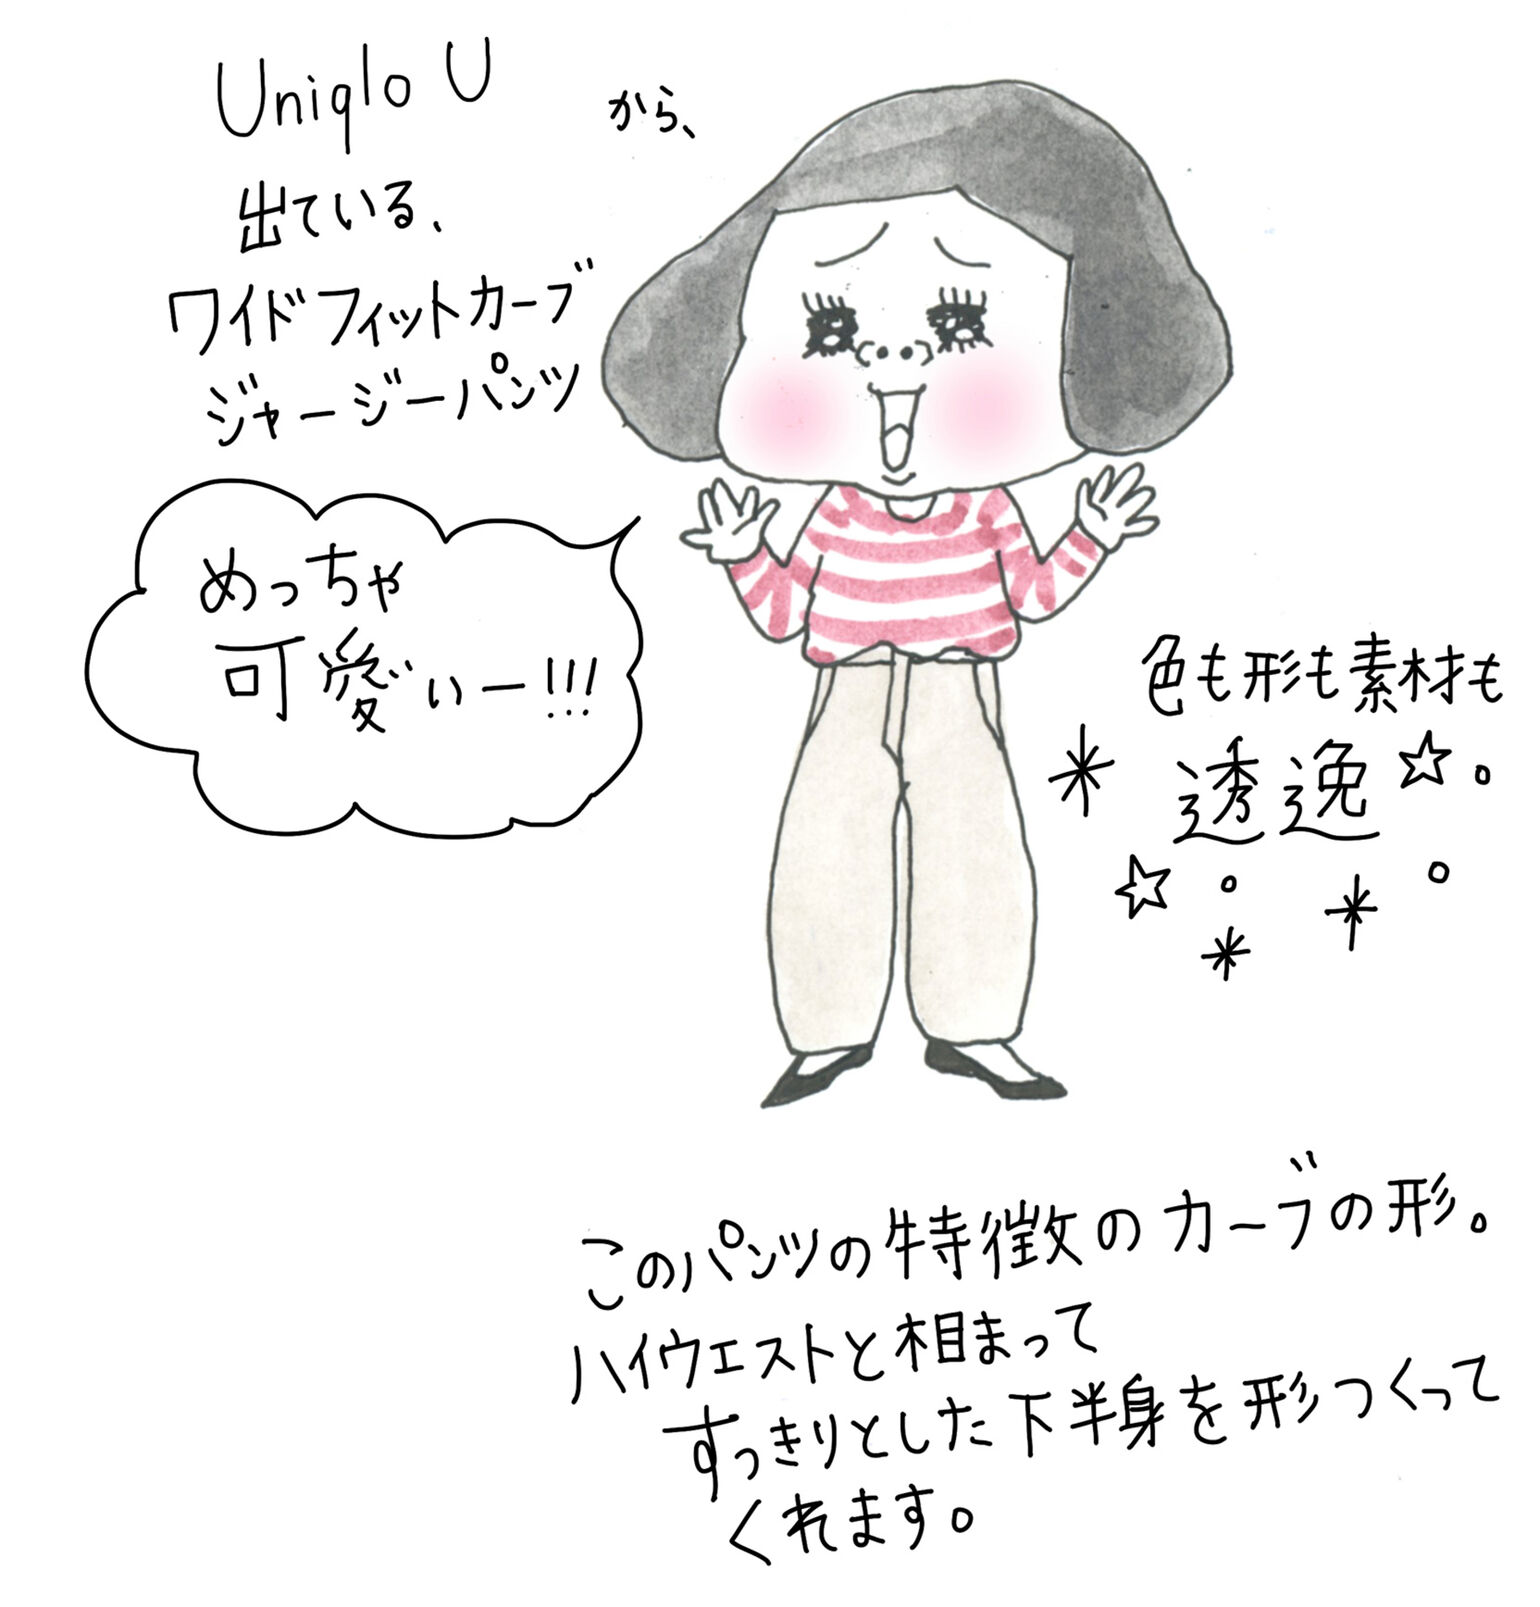 Uniqlo U から、
出ている、
ワイドフィットカーブ
ジャージーパンツ
めっちゃ
可愛いぃー!!!
色も形も素材も
透逸☆。
このパンツの特徴のカーブの形。
ハイウエストと相まって
すっきりとした下半身を形つくって
くれます。